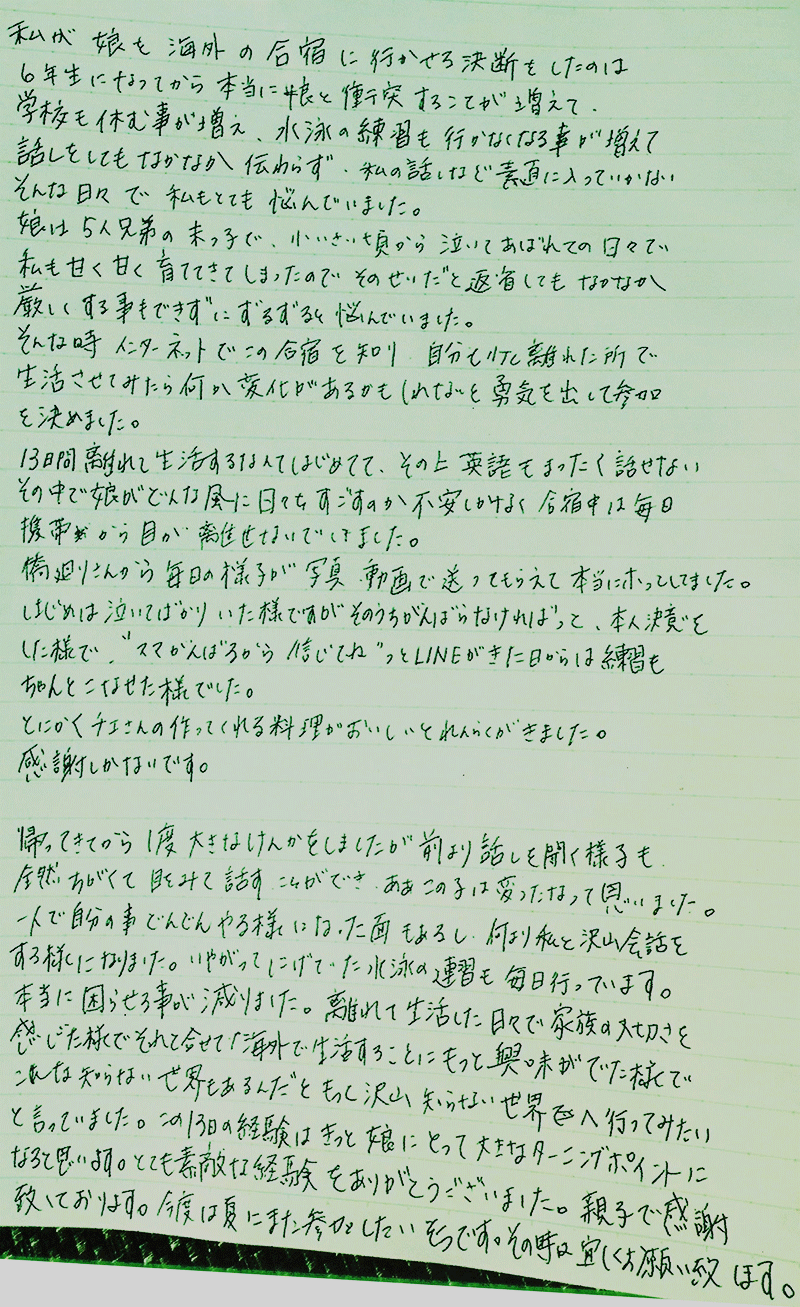 私が娘を海外の合宿に行かせる決断をしたのは
6年生になってから本当に娘と衝突することが増えて、
学校も休む事が増え、水泳の練習も行かなくなる事が増えて
話しをしてもなかなか伝わらず、私の話しなど素直に入っていかない
そんな日々で私もとても悩んでいました。
娘は5人兄弟の末っ子で、小いさい頃から泣いてあばれての日々で
私も甘く甘く育ててきてしまったのでそのせいだと返省してもなかなか
厳しくする事もできずにずるずると悩んでいました。
そんな時インターネットでこの合宿を知り、自分もけじ離れた所で
生活させてみたら何か変化があるかもしれないと勇気を出して参加
を決めました。
13日間離れて生活するなんてはじめてで、その上英語もまったく話せない
その中で娘がどんな風に日々をすごすのか不安しかなく合宿中は毎日
携帯から目が離せないでいました。
橋廻りさんから毎日の様子が写真、動画で送ってもらえて本当にホッとしてました。
はじめは泣いてばかりいた様ですがそのうちがんばらなければって、本人決意を
した様で、"ママがんばるから信じてね"っとLINEがきた日からは練習も
ちゃんとこなせた様でした。
とにかくチエさんの作ってくれる料理がおいしいとれんらくがきました。
感謝しかないです。
帰ってきてから1度大きなけんかをしましたが前より話しを聞く様子も
全然ちがくて目をみて話すことができ、ああこの子は変ったなって思いました。
一人で自分の事どんどんやる様になった面もあるし、何より私と沢山会話を
する様になりました。いやがってにげていた水泳の連習も毎日行っています。
本当に困らせる事が減りました。離れて生活した日々で家族の大切さを
感じた様でそれと合せて海外で生活することにもっと興味がでた様で
こんな知らない世界もあるんだともっと沢山知らない世界へ行ってみたい
と言っていました。この13日の経験はきっと娘にとって大きなターニングポイントに
なると思います。とても素敵な経験をありがとうございました。親子で感謝
致しております。今度は夏にまた参加したいそうです。その時は宜しくお願い致します。